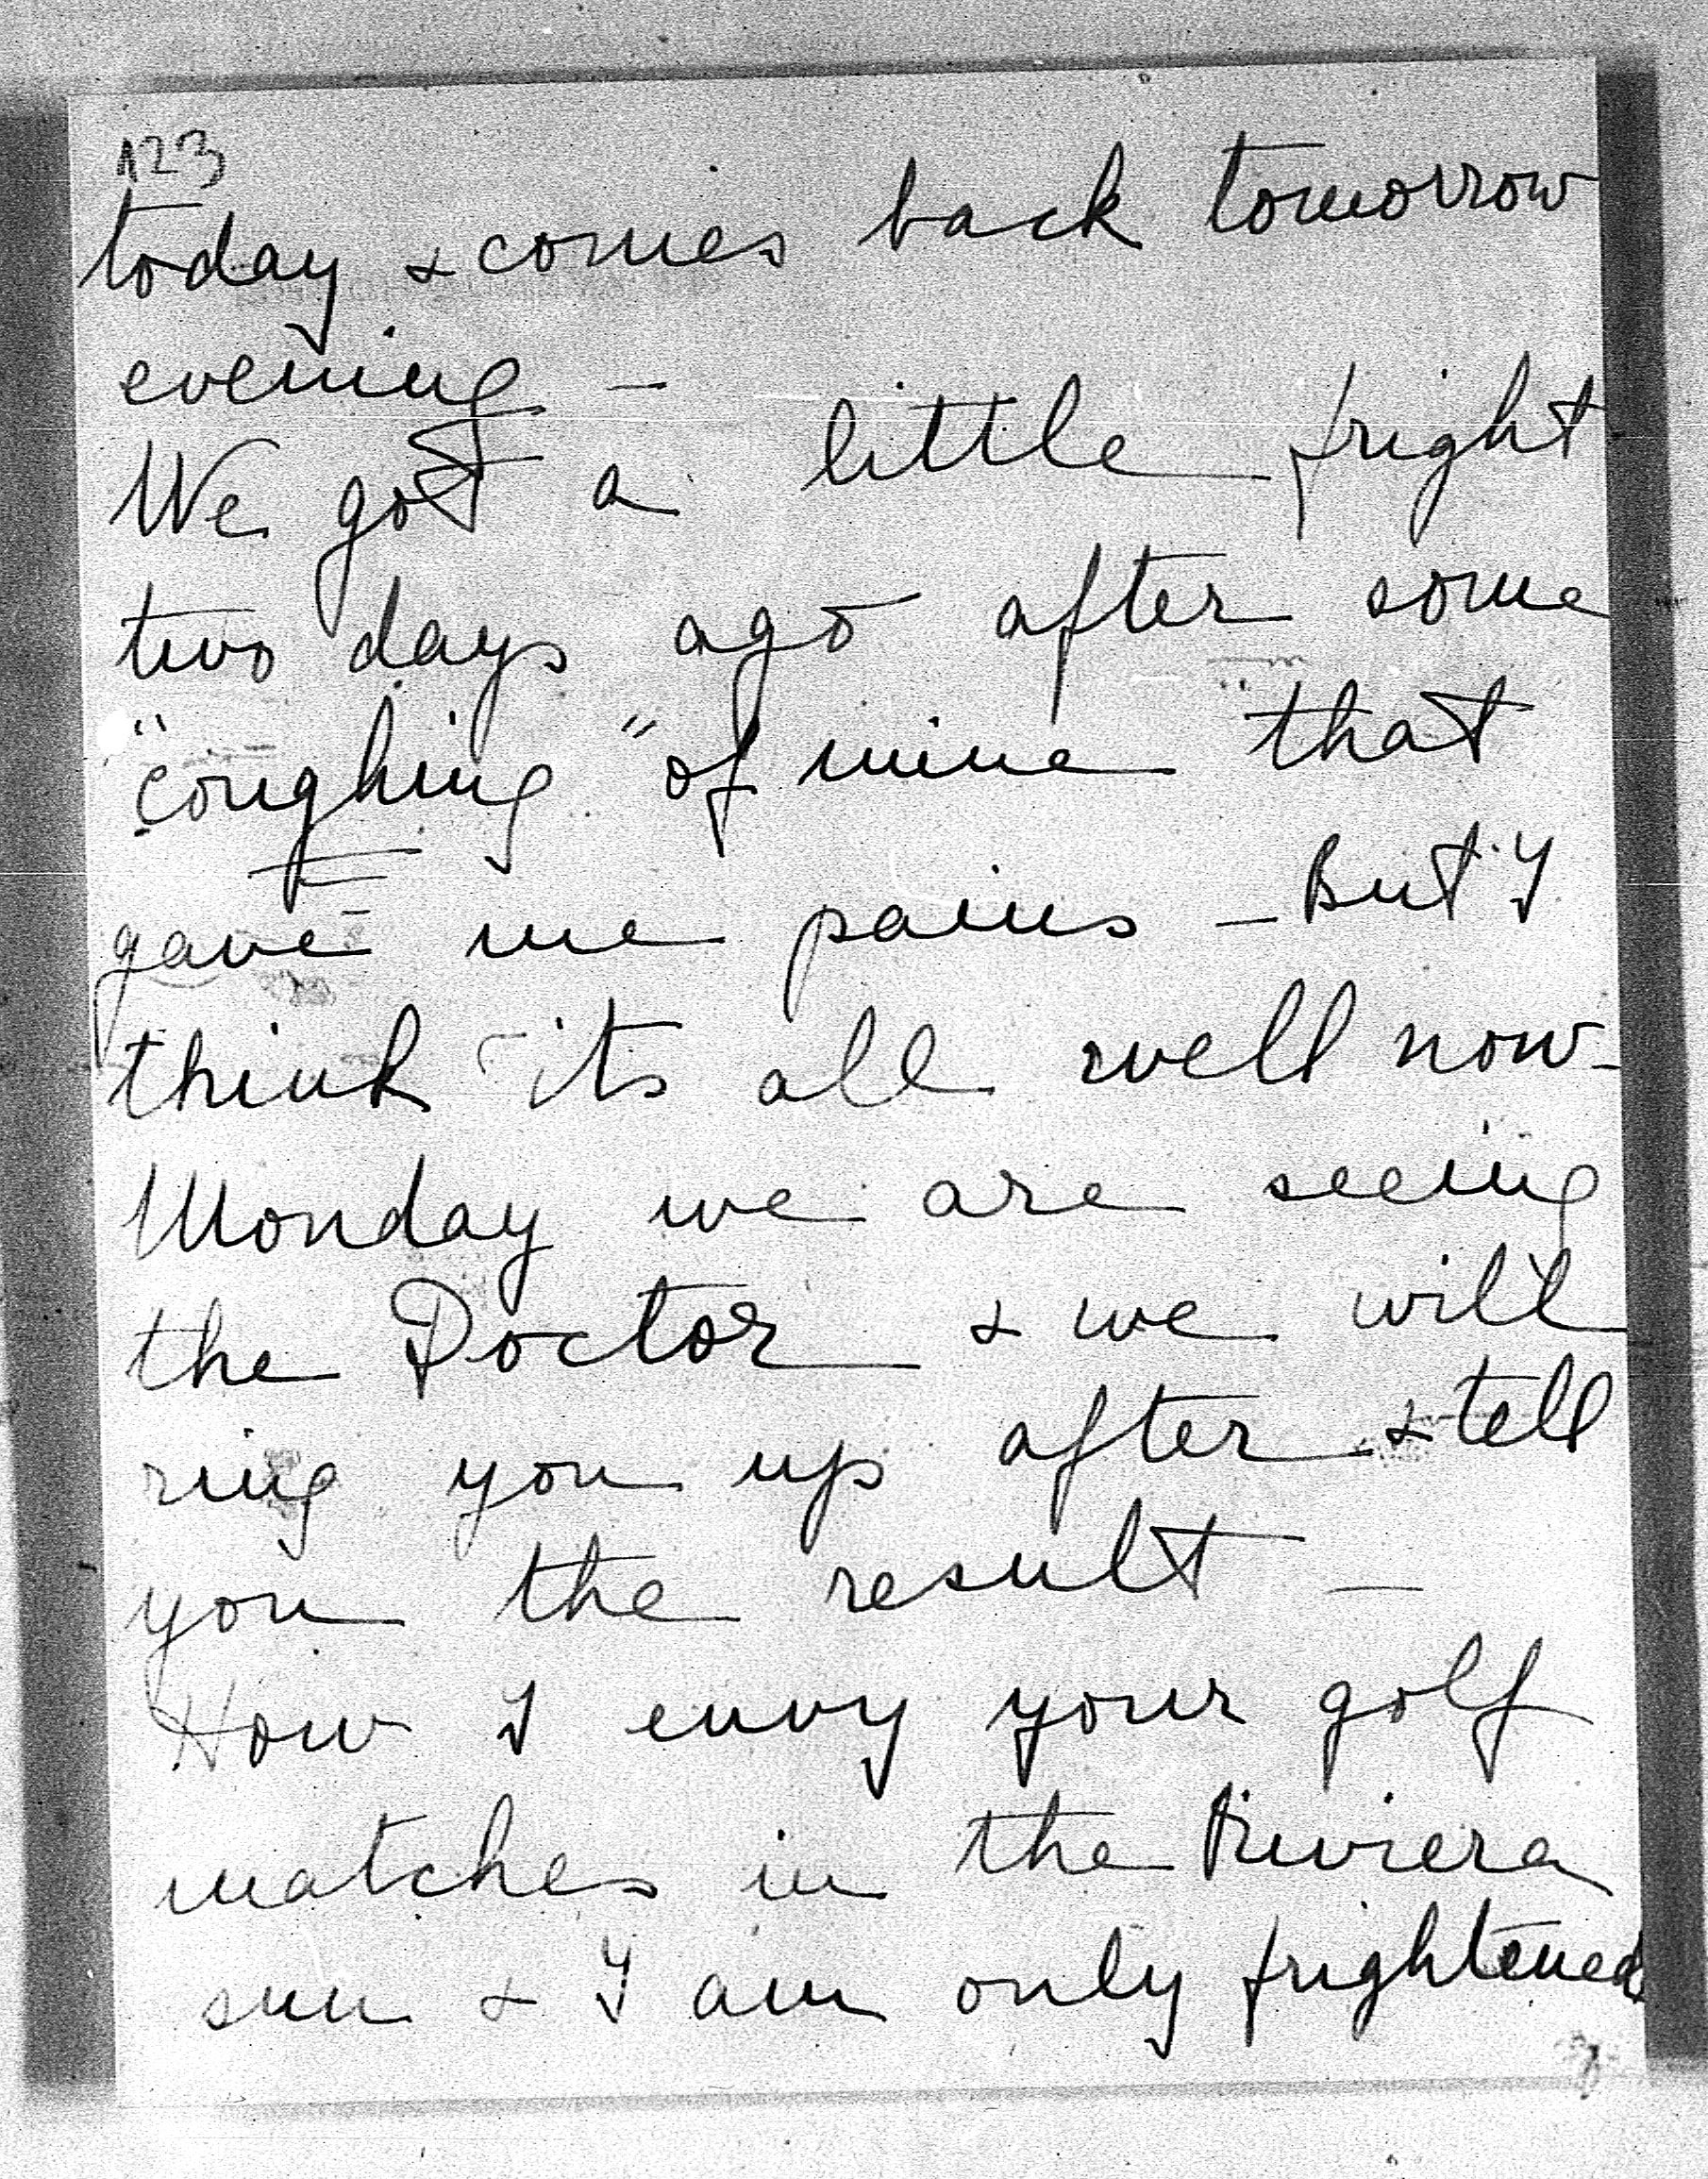 123
today & comes back tomorrow
evening –
We got a little fright
two days ago after some
"coughing" of mine that
gave me pains – But I
think its all well now –
Monday we are seeing
the Doctor & we will
ring you up after & tell
you the result –
How I envy your golf
matches in the Riviera
sun & I am only frightened